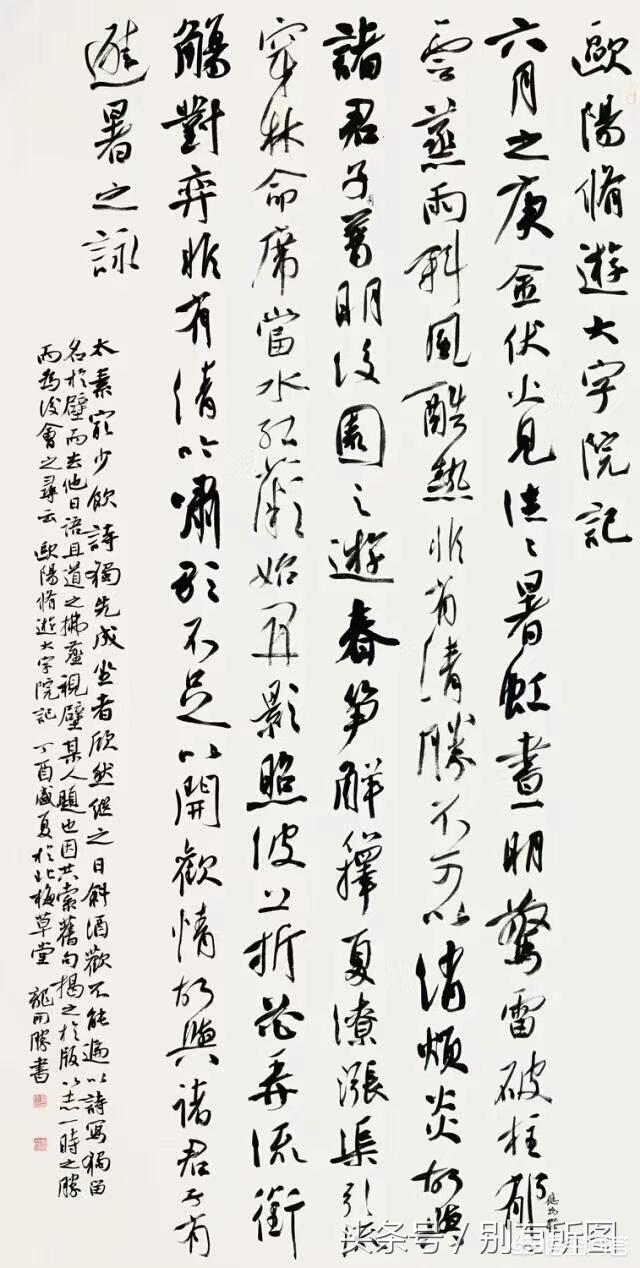 歐陽脩遊大字院記
六月之庚金伏火見往々暑虹晝明驚雷破柱郁
雲蒸雨斜風酷熱非有清勝不可以消煩炎故與
諸君子有普明後園之遊春筍解籜夏潦漲渠引流
穿林命席當水紅薇始開影照波上折花弄流銜
觴對弈非有清吟嘯歌不足以開歡情故與諸君子有
避暑之詠
太素最少飲詩獨先成坐者欣然繼之日斜酒歡不能遍以詩寫獨留
名於壁而去他日語且道之拂塵視壁某人題也因共索舊句揭之於版以志一時之勝
而為後會之尋云 歐陽脩遊大字院記 丁酉盛夏於北梅草堂 龍開勝書
头条号 / 别有所图